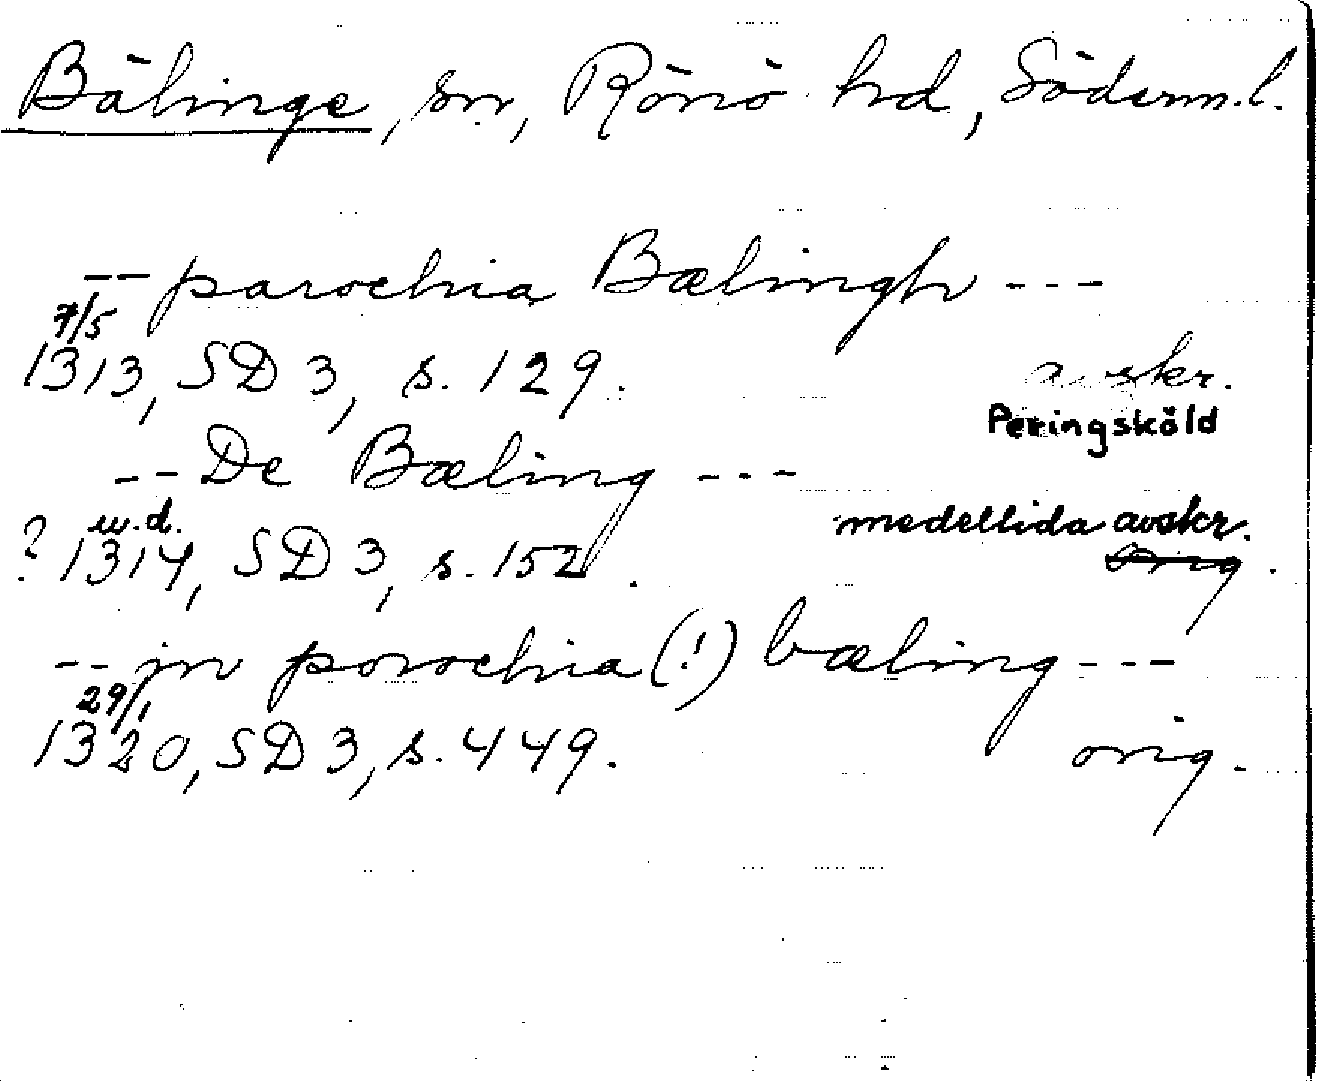 Bälinge, sn, Rönö hd, Söderm.l.
-- parochia Bælingh ---
7/5
1313, SD 3, s. 129. avskr.
Peringsköld
-- De Bæling ---
u.d. medeltida avskr.
? 1314, SD 3, s. 152. orig.
-- in porochia (!) bæling ---
29/1
1320, SD 3, s. 449. orig.